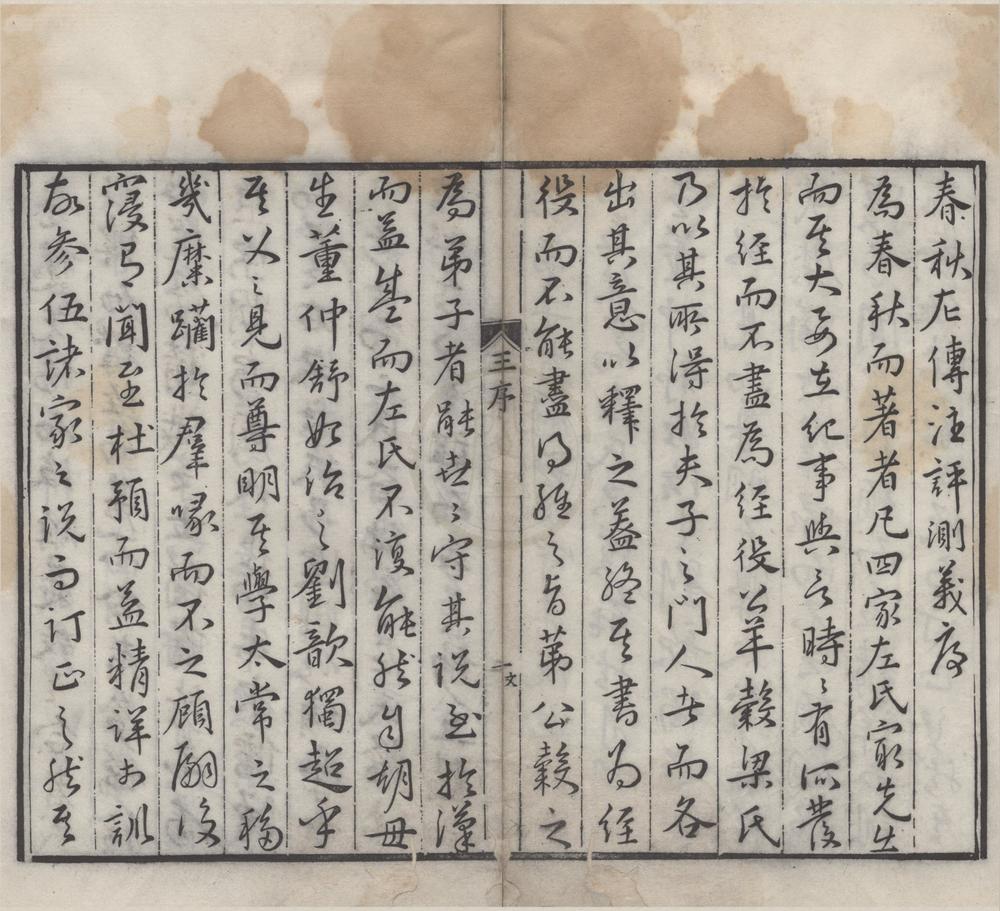 春秋左傳注評測義序
為春秋而著者凡四家左氏㝡先出
而其大要在紀事與言時〻有所發
於經而不盡為經役公羊穀梁氏
乃以其所得於夫子之門人者而各
出其意以釋之蓋終其書為經
役而不能盡得經之旨第公穀之
王序
一
文
為弟子者能世〻守其說至於漢
而益盛而左氏不復能然自胡毋
生董仲舒始治之劉歆獨超乎
其父之見而尊明其學太常之移
幾糜躪於羣喙而不之顧嗣後
寖有聞至杜預而益精詳於訓
故參伍諸家之說而訂正之然其